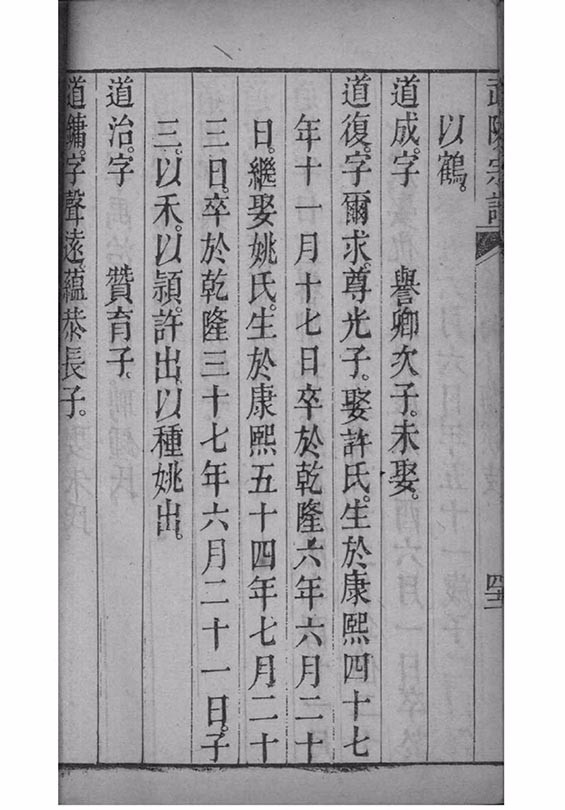 以鶴。
道成。字　譽卿次子。未娶。
道復。字爾求。尊光子。娶許氏。生於康熙四十七
年十一月十七日卒於乾隆六年六月二十
日。繼娶姚氏。生於康熙五十四年七月二十
三日。卒於乾隆三十七年六月二十一日。子
三。以禾。以頴。許出。以種姚出。
道治。字　贊育子。
道鏞。字聲遠。蘊恭長子。